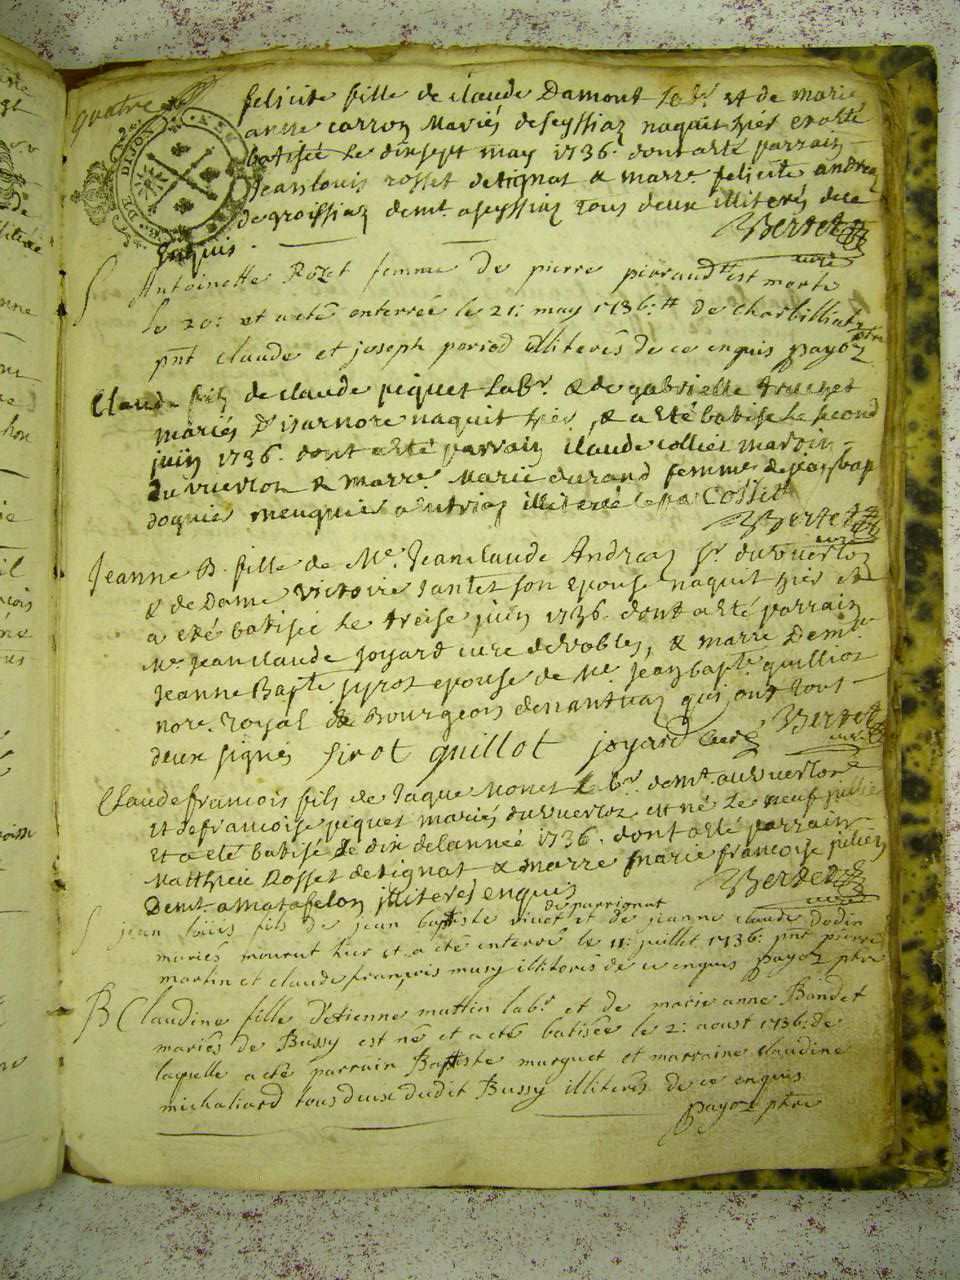 quatre
DE DIJON
felicite fille de claude Damont labr. et de marie
anne carron Mariés deseyssiaz naquit hier et a été
batisée le dix sept may 1736. dont a été parrain
Jean louis rosset detignat & marre. felicite andrea
de groissiaz demt. a seyssiaz tous deux illiterés de ce
enquis.
Bertet curé
Antoinette Rozet femme de pierre pieraud est morte
le 20: et a été enterrée le 21: may 1736: de charbilliat
pnt claude et joseph period illiterés de ce enquis payoz ptre
Claude fils de claude piquet labr. & de gabrielle
mariés d'isarnore naquit hier, & a été batisé le second
juin 1736. dont a été parrain claude colliet
du vuerloz & marre. Marie durand femme de jean bap
illiterée
Bertet curé
Jeanne B. fille de Me. Jean claude Andrea Sr. du vuerloz
& de Dame victoire tantet son epouse naquit hier et
a été batisée le treise juin 1736. dont a été parrain
Mr. jean claude joyard curé de vobles, & marre Demlle
Jeanne Bapte. epouse de Me. jean bapte. guilliot
nore. royal & Bourgeois denantua qui ont tous
deux signés Sirot guillot joyard curé Bertet
curé
Claude francois fils de Jaque Monet labr. demt. au vuerloz
et de francoise piquet mariés du vuerloz est né le neuf juillet
et a été batisé le dix de l'année 1736. dont a été parrain
Matthieu Rosset de tignat & marre marie francoise
demt. a matafelon illiterés enquis Bertet
curé
de parrignat
jean louis fils de jean batiste vivet et de jeanne claude dodin
mariés mourut hier et a été enterré le 11: juillet 1736: pnt pierre
martin et claude françois musy illiterés de ce enquis payoz ptre
B Claudine fille d'etienne mattin labr. et de marie anne Bandet
mariés de Bussy est né et a été batisée le 2: aoust 1736: de
laquelle a été parrain Batiste marguet et marraine claudine
michaliard tous deux dudit Bussy illiterés de ce enquis
payoz ptre